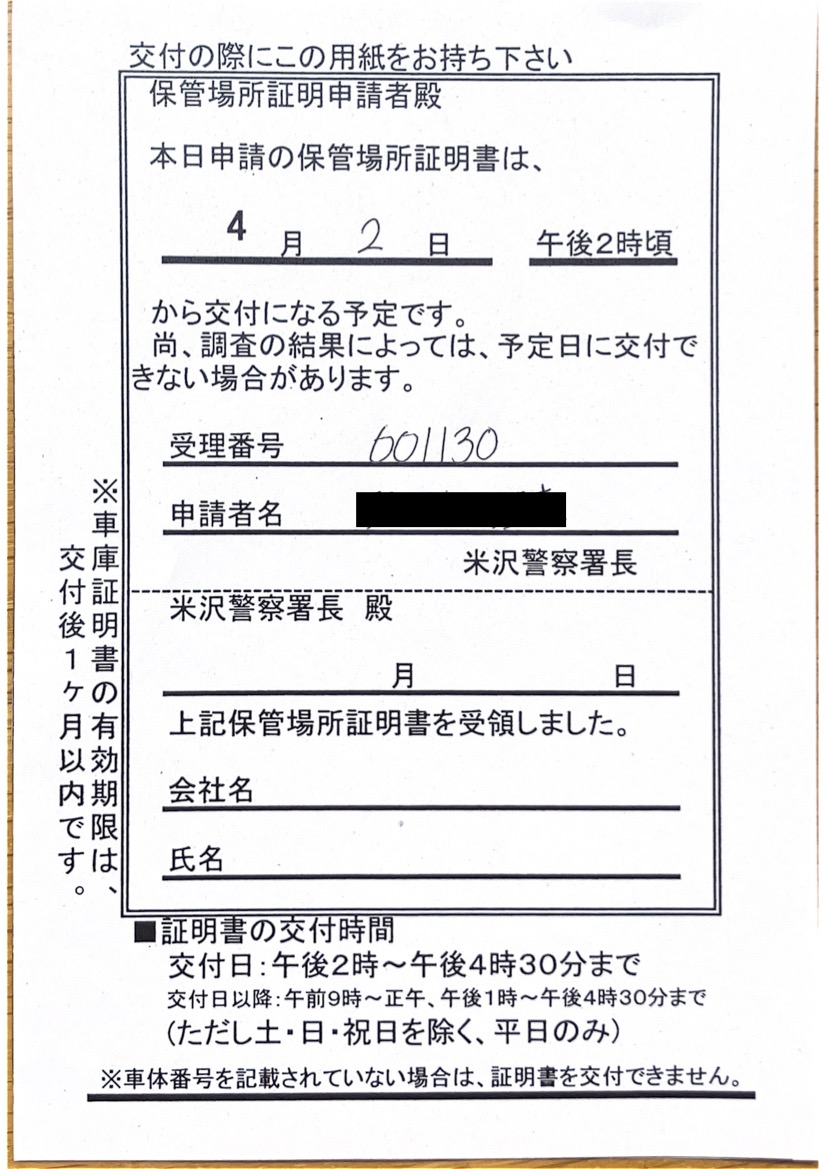 交付の際にこの用紙をお持ち下さい
保管場所証明申請者殿
本日申請の保管場所証明書は、
4月2日 午後2時頃
から交付になる予定です。
尚、調査の結果によっては、予定日に交付で
きない場合があります。
受理番号 601130
申請者名
米沢警察署長
米沢警察署長 殿
月 日
上記保管場所証明書を受領しました。
会社名
氏名
※車庫証明書の有効期限は、
交付後1ヶ月以内です。
■証明書の交付時間
交付日:午後2時～午後4時30分まで
交付日以降:午前9時～正午、午後1時～午後4時30分まで
(ただし土・日・祝日を除く、平日のみ)
※車体番号を記載されていない場合は、証明書を交付できません。